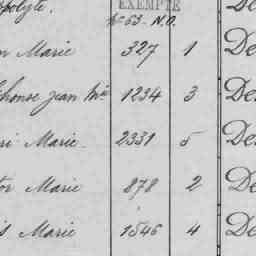 polyte. EXEMPTE De
No 63. N.O.
n Marie 327 1 De
phonse Jean Mie 1234 3 De
ri Marie 2331 5 De
tor Marie 878 2 De
s Marie 1546 4 De